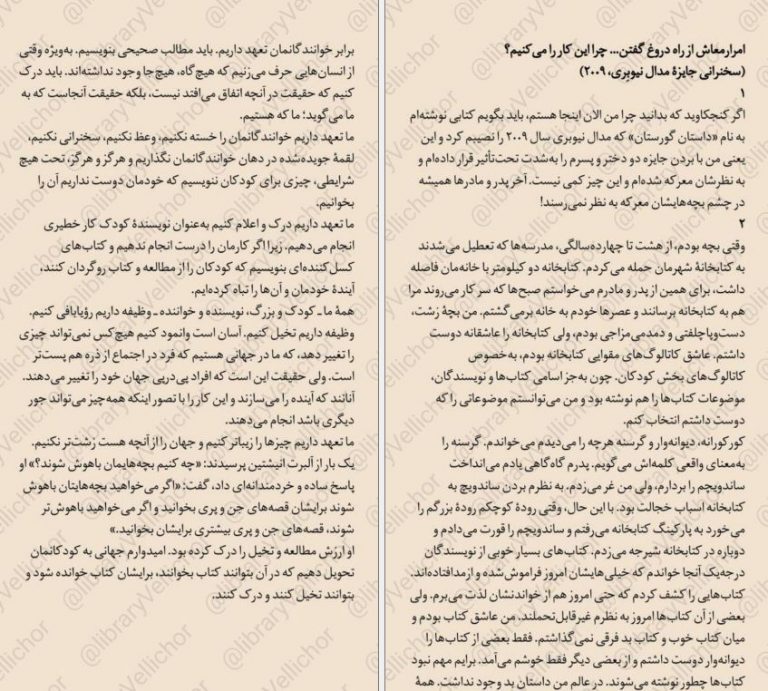 امرار معاش از راه دروغ گفتن... چرا این کار را می‌کنیم؟
(سخنرانی جایزهٔ مدال نیوبری، ۲۰۰۹)
۱
اگر کنجکاوید که بدانید چرا من الان اینجا هستم، باید بگویم کتابی نوشته‌ام
به نام «داستان گورستان» که مدال نیوبری سال ۲۰۰۹ را نصیبم کرد و این
یعنی من با بردن جایزه دو دختر و پسرم را به‌شدت تحت‌تأثیر قرار داده‌ام و
به نظرشان معرکه شده‌ام و این چیز کمی نیست. آخر پدر و مادرها همیشه
در چشم بچه‌هایشان معرکه به نظر نمی‌رسند!
۲
وقتی بچه بودم، از هشت تا چهارده‌سالگی، مدرسه‌ها که تعطیل می‌شدند
به کتابخانهٔ شهرمان حمله می‌کردم. کتابخانه دو کیلومتر با خانه‌مان فاصله
داشت، برای همین از پدر و مادرم می‌خواستم صبح‌ها که سر کار می‌روند مرا
هم به کتابخانه برسانند و عصرها خودم به خانه برمی‌گشتم. من بچهٔ زشت،
دست‌وپاچلفتی و دمدمی‌مزاجی بودم، ولی کتابخانه را عاشقانه دوست
داشتم. عاشق کاتالوگ‌های مقوایی کتابخانه بودم، به‌خصوص
کاتالوگ‌های بخش کودکان. چون به‌جز اسامی کتاب‌ها و نویسندگان،
موضوعات کتاب‌ها را هم نوشته بود و من می‌توانستم موضوعاتی را که
دوست داشتم انتخاب کنم.
کورکورانه، دیوانه‌وار و گرسنه هرچه را می‌دیدم می‌خواندم. گرسنه را
به‌معنای واقعی کلمه‌اش می‌گویم. پدرم گاه‌گاهی یادم می‌انداخت
ساندویچم را بردارم، ولی من غر می‌زدم. به نظرم بردن ساندویچ به
کتابخانه اسباب خجالت بود. با این حال، وقتی رودهٔ کوچکم رودهٔ بزرگم را
می‌خورد به پارکینگ کتابخانه می‌رفتم و ساندویچم را قورت می‌دادم و
دوباره در کتابخانه شیرجه می‌زدم. کتاب‌های بسیار خوبی از نویسندگان
درجه‌یک آنجا خواندم که خیلی‌هایشان امروز فراموش‌شده و ازمدافتاده‌اند.
کتاب‌هایی را کشف کردم که حتی امروز هم از خواندنشان لذت می‌برم. ولی
بعضی از آن کتاب‌ها امروز به نظرم غیرقابل‌تحملند. من عاشق کتاب بودم و
میان کتاب خوب و کتاب بد فرقی نمی‌گذاشتم. فقط بعضی از کتاب‌ها را
دیوانه‌وار دوست داشتم و از بعضی دیگر فقط خوشم می‌آمد. برایم مهم نبود
کتاب‌ها چطور نوشته می‌شوند. در عالم من داستان بد وجود نداشت. همهٔ
برابر خوانندگانمان تعهد داریم. باید مطالب صحیحی بنویسیم. به‌ویژه وقتی
از انسان‌هایی حرف می‌زنیم که هیچ‌گاه، هیچ‌جا وجود نداشته‌اند. باید درک
کنیم که حقیقت در آنچه اتفاق می‌افتد نیست، بلکه حقیقت آنجاست که به
ما می‌گوید؛ ما که هستیم.
ما تعهد داریم خوانندگانمان را خسته نکنیم، وعظ نکنیم، سخنرانی نکنیم،
لقمهٔ جویده‌شده در دهان خوانندگانمان نگذاریم و هرگز و هرگز، تحت هیچ
شرایطی، چیزی برای کودکان ننویسیم که خودمان دوست نداریم آن را
بخوانیم.
ما تعهد داریم درک و اعلام کنیم به‌عنوان نویسندهٔ کودک کار خطیری
انجام می‌دهیم. زیرا اگر کارمان را درست انجام ندهیم و کتاب‌های
کسل‌کننده‌ای بنویسیم که کودکان را از مطالعه و کتاب روگردان کنند،
آیندهٔ خودمان و آن‌ها را تباه کرده‌ایم.
همهٔ ما ـ کودک و بزرگ، نویسنده و خواننده ـ وظیفه داریم رؤیابافی کنیم.
وظیفه داریم تخیل کنیم. آسان است وانمود کنیم هیچ‌کس نمی‌تواند چیزی
را تغییر دهد، که ما در جهانی هستیم که فرد در اجتماع از ذره هم پست‌تر
است. ولی حقیقت این است که افراد پی‌درپی جهان خود را تغییر می‌دهند.
آنانند که آینده را می‌سازند و این کار را با تصور اینکه همه‌چیز می‌تواند جور
دیگری باشد انجام می‌دهند.
ما تعهد داریم چیزها را زیباتر کنیم و جهان را از آنچه هست زشت‌تر نکنیم.
یک بار از آلبرت انیشتین پرسیدند: «چه کنیم بچه‌هایمان باهوش شوند؟» او
پاسخ ساده و خردمندانه‌ای داد، گفت: «اگر می‌خواهید بچه‌هایتان باهوش
شوند برایشان قصه‌های جن و پری بخوانید و اگر می‌خواهید باهوش‌تر
شوند، قصه‌های جن و پری بیشتری برایشان بخوانید.»
او ارزش مطالعه و تخیل را درک کرده بود. امیدوارم جهانی به کودکانمان
تحویل دهیم که در آن بتوانند کتاب بخوانند، برایشان کتاب خوانده شود و
بتوانند تخیل کنند و درک کنند.
@libraryVellichor